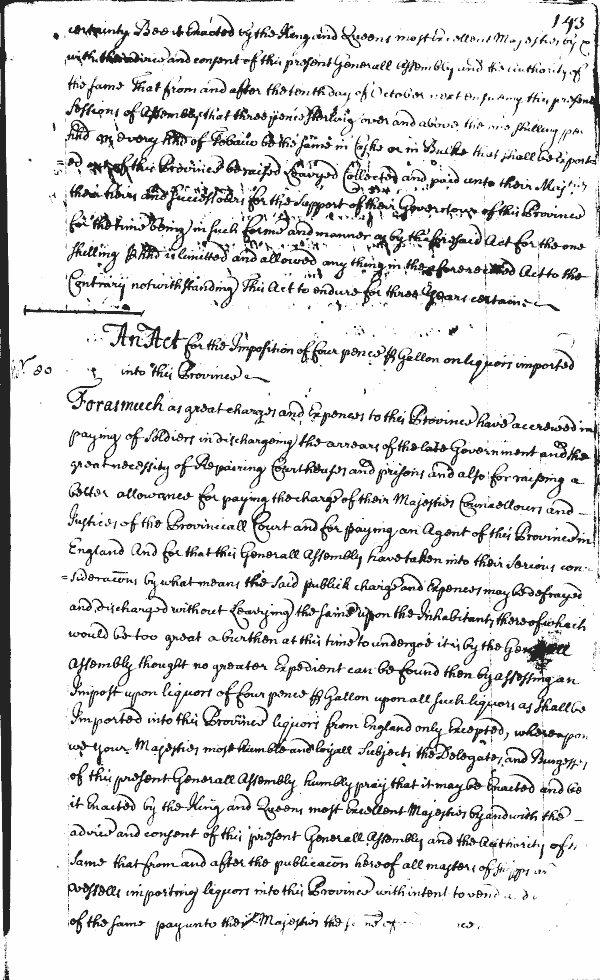 143
certainty Bee it Enacted by the King and Queens most Excellent Majesties by &
with the advice and consent of this present Generall Assembly and the authority of
the same That from and after the tenth day of October next ensuing this present
Sessions of Assembly that three pence sterling over and above the one shilling per
hhd on every hhd of Tobacco be the same in Caske or in Bulke that shall be export
=ed out of this Province be raised Leavyed Collected and paid unto their Maj'ties
their heirs and Successours for the Support of their Governour of this Province
for the time being in such forme and manner as by the foresaid Act for the one
shilling p hhd is limitted and allowed any thing in the aforerecited Act to the
Contrary notwithstanding This Act to endure for three years certaine
An Act for the Imposition of four pence p Gallon on liquors imported
into this Province
Forasmuch as great charges and Expences to this Province have accrewed in
paying of Soldiers in dischargeing the arrears of the late Government and the
great necessity of Repairing Courthouses and prisons and also for raiseing a
better allowance for paying the charge of their Majesties Councellours and
Justices of the Provinciall Court and for paying an Agent of this Province in
England And for that this Generall Assembly have taken into their Serious con
=sideracōns by what means the said publick charge and Expences may be defrayed
and discharged without Leavying the same upon the Inhabitants thereof which
would be too great a burthen at this time to undergoe it is by the Generall
Assembly thought no greater Expedient can be found then by assessing an
Impost upon liquors of four pence p Gallon upon all such liquors as shall be
Imported into this Province liquors from England only Excepted, whereupon
we your Majesties most humble and loyall Subjects the Delegates and Burgess
of this present Generall Assembly humbly pray that it may be Enacted and be
it Enacted by the King and Queens most Excellent Majesties by and with the
advice and consent of this present Generall Assembly and the Authority of
same that from and after the publicacōn hereof all masters of shipps
vessells importing liquors into this Province with intent to vend
of the same pay unto their Majesties the